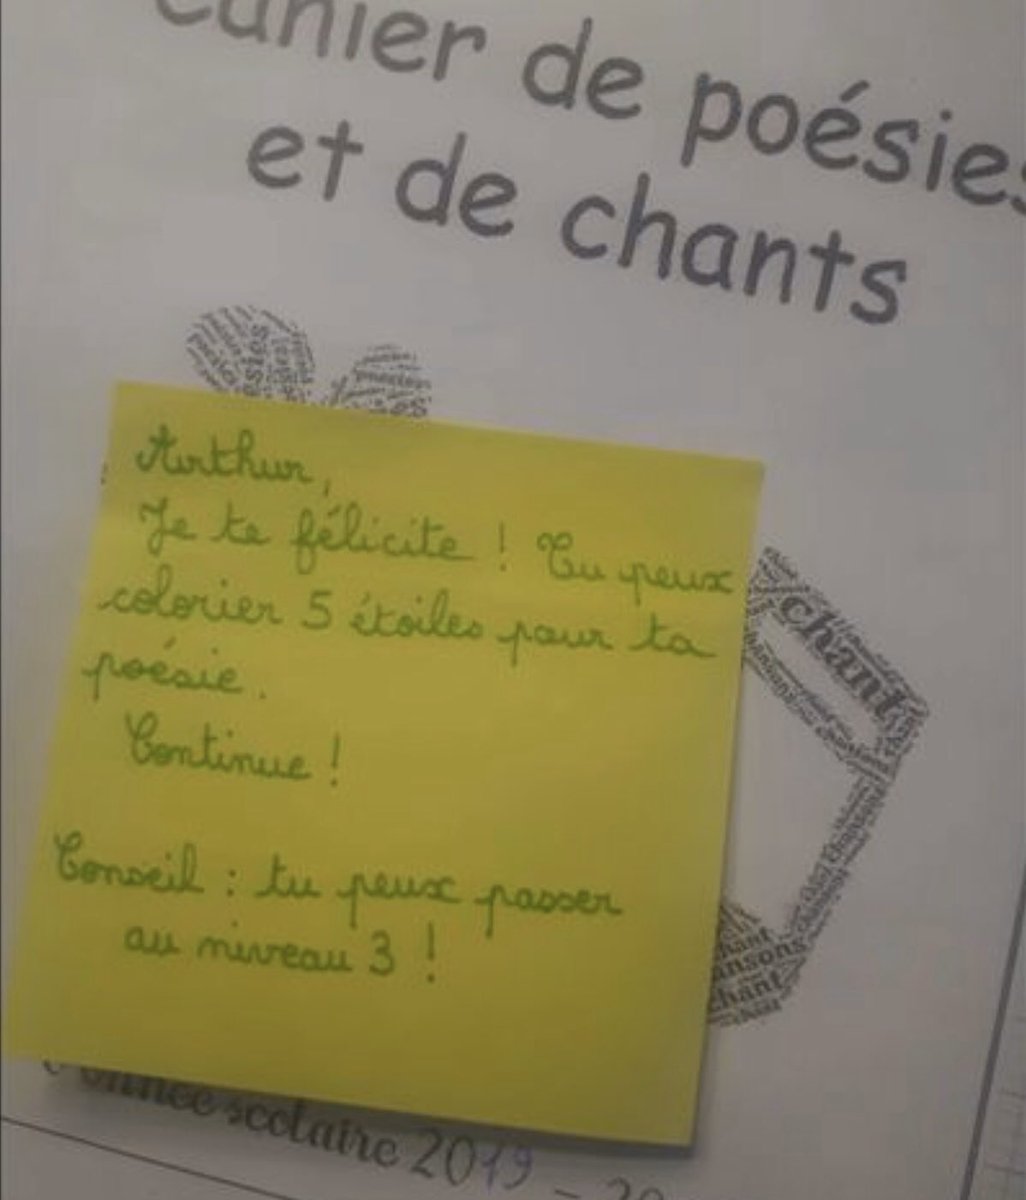 Cahier de poésies
et de chants
Arthur,
Je te félicite ! Tu peux
colorier 5 étoiles pour ta
poésie.
Continue !
Conseil : tu peux passer
au niveau 3 !
chant
chant
ansons
chant
année scolaire 2019 - 20